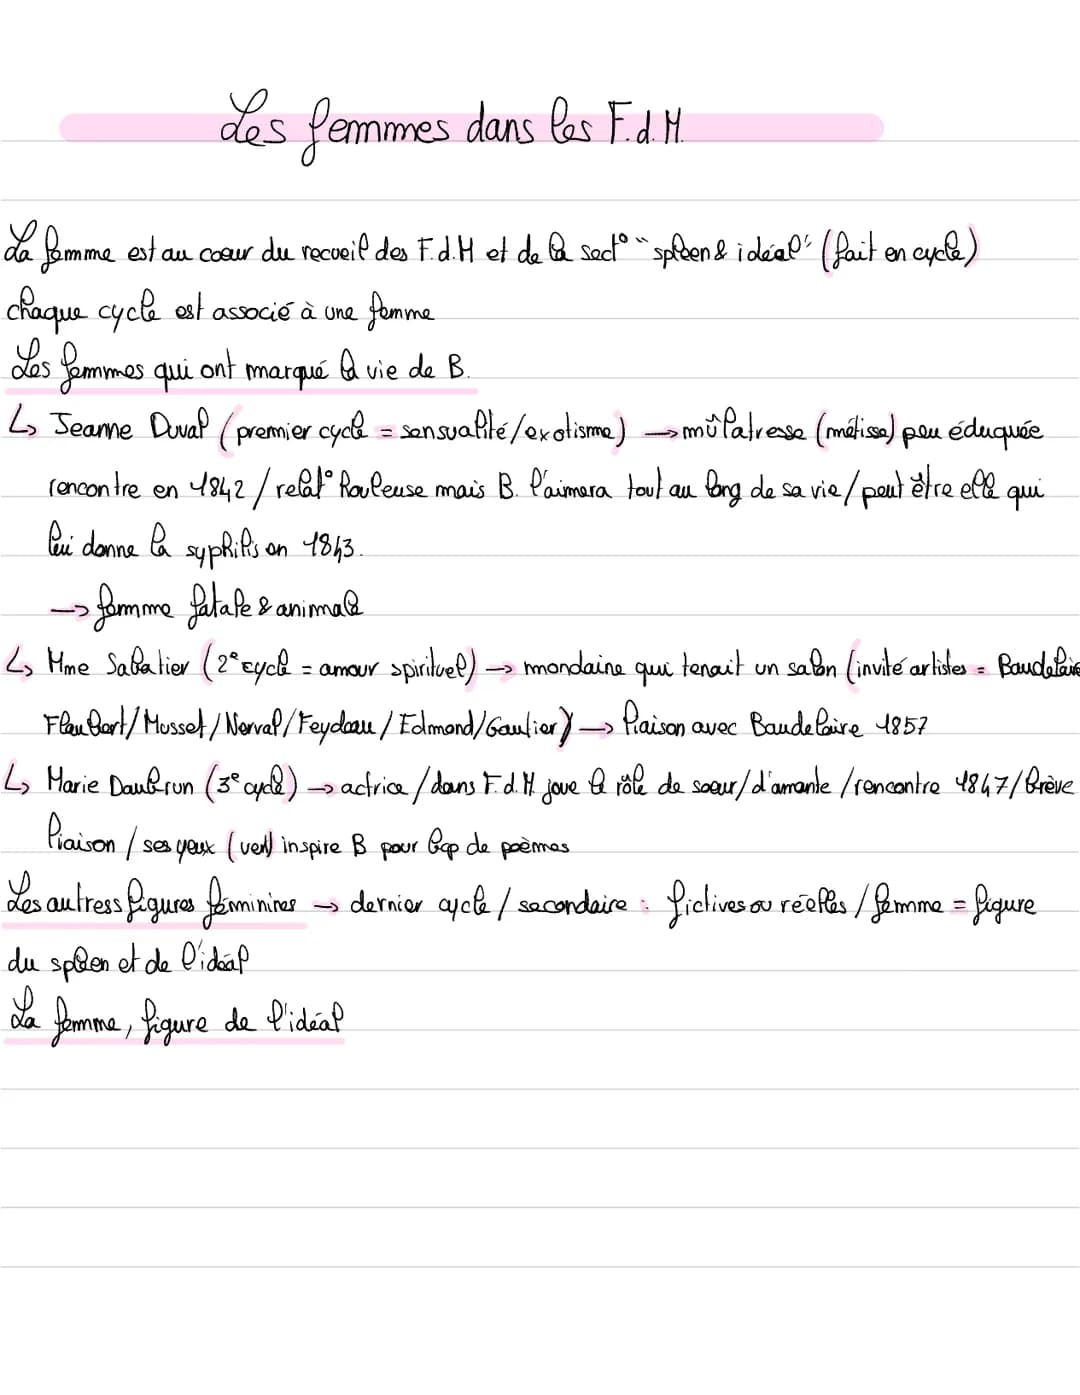 Les femmes dans les F.d.M.
La femme est au coeur du recueil des F.d.M et de la sect° "spleen & idéal" (fait en cycle)
chaque cycle est associé à une femme
Les femmes qui ont marqué la vie de B.
↳ Jeanne Duval (premier cycle = sensualité/exotisme) → mûlatresse (métisse) peu éduquée
rencontre en 1842 / relat° houleuse mais B. l'aimera tout au long de sa vie / peut être elle qui
lui donne la syphilis en 1843.
→ femme fatale & animale
↳ Mme Sabatier (2° cycle = amour spirituel) → mondaine qui tenait un salon (invité artistes = Baudelaire
Flaubert/Musset/Nerval/Feydeau/Edmond/Gautier) → liaison avec Baudelaire 1857
↳ Marie Daubrun (3° cycle) → actrice / dans F.d.M. joue le rôle de soeur/d'amante / rencontre 1847/brève
liaison / ses yeux (vert) inspire B pour bcp de poèmes
Les autress figures fémininines → dernier cycle / secondaire : fictives ou réelles / femme = figure
du spleen et de l'idéal
La femme, figure de l'idéal